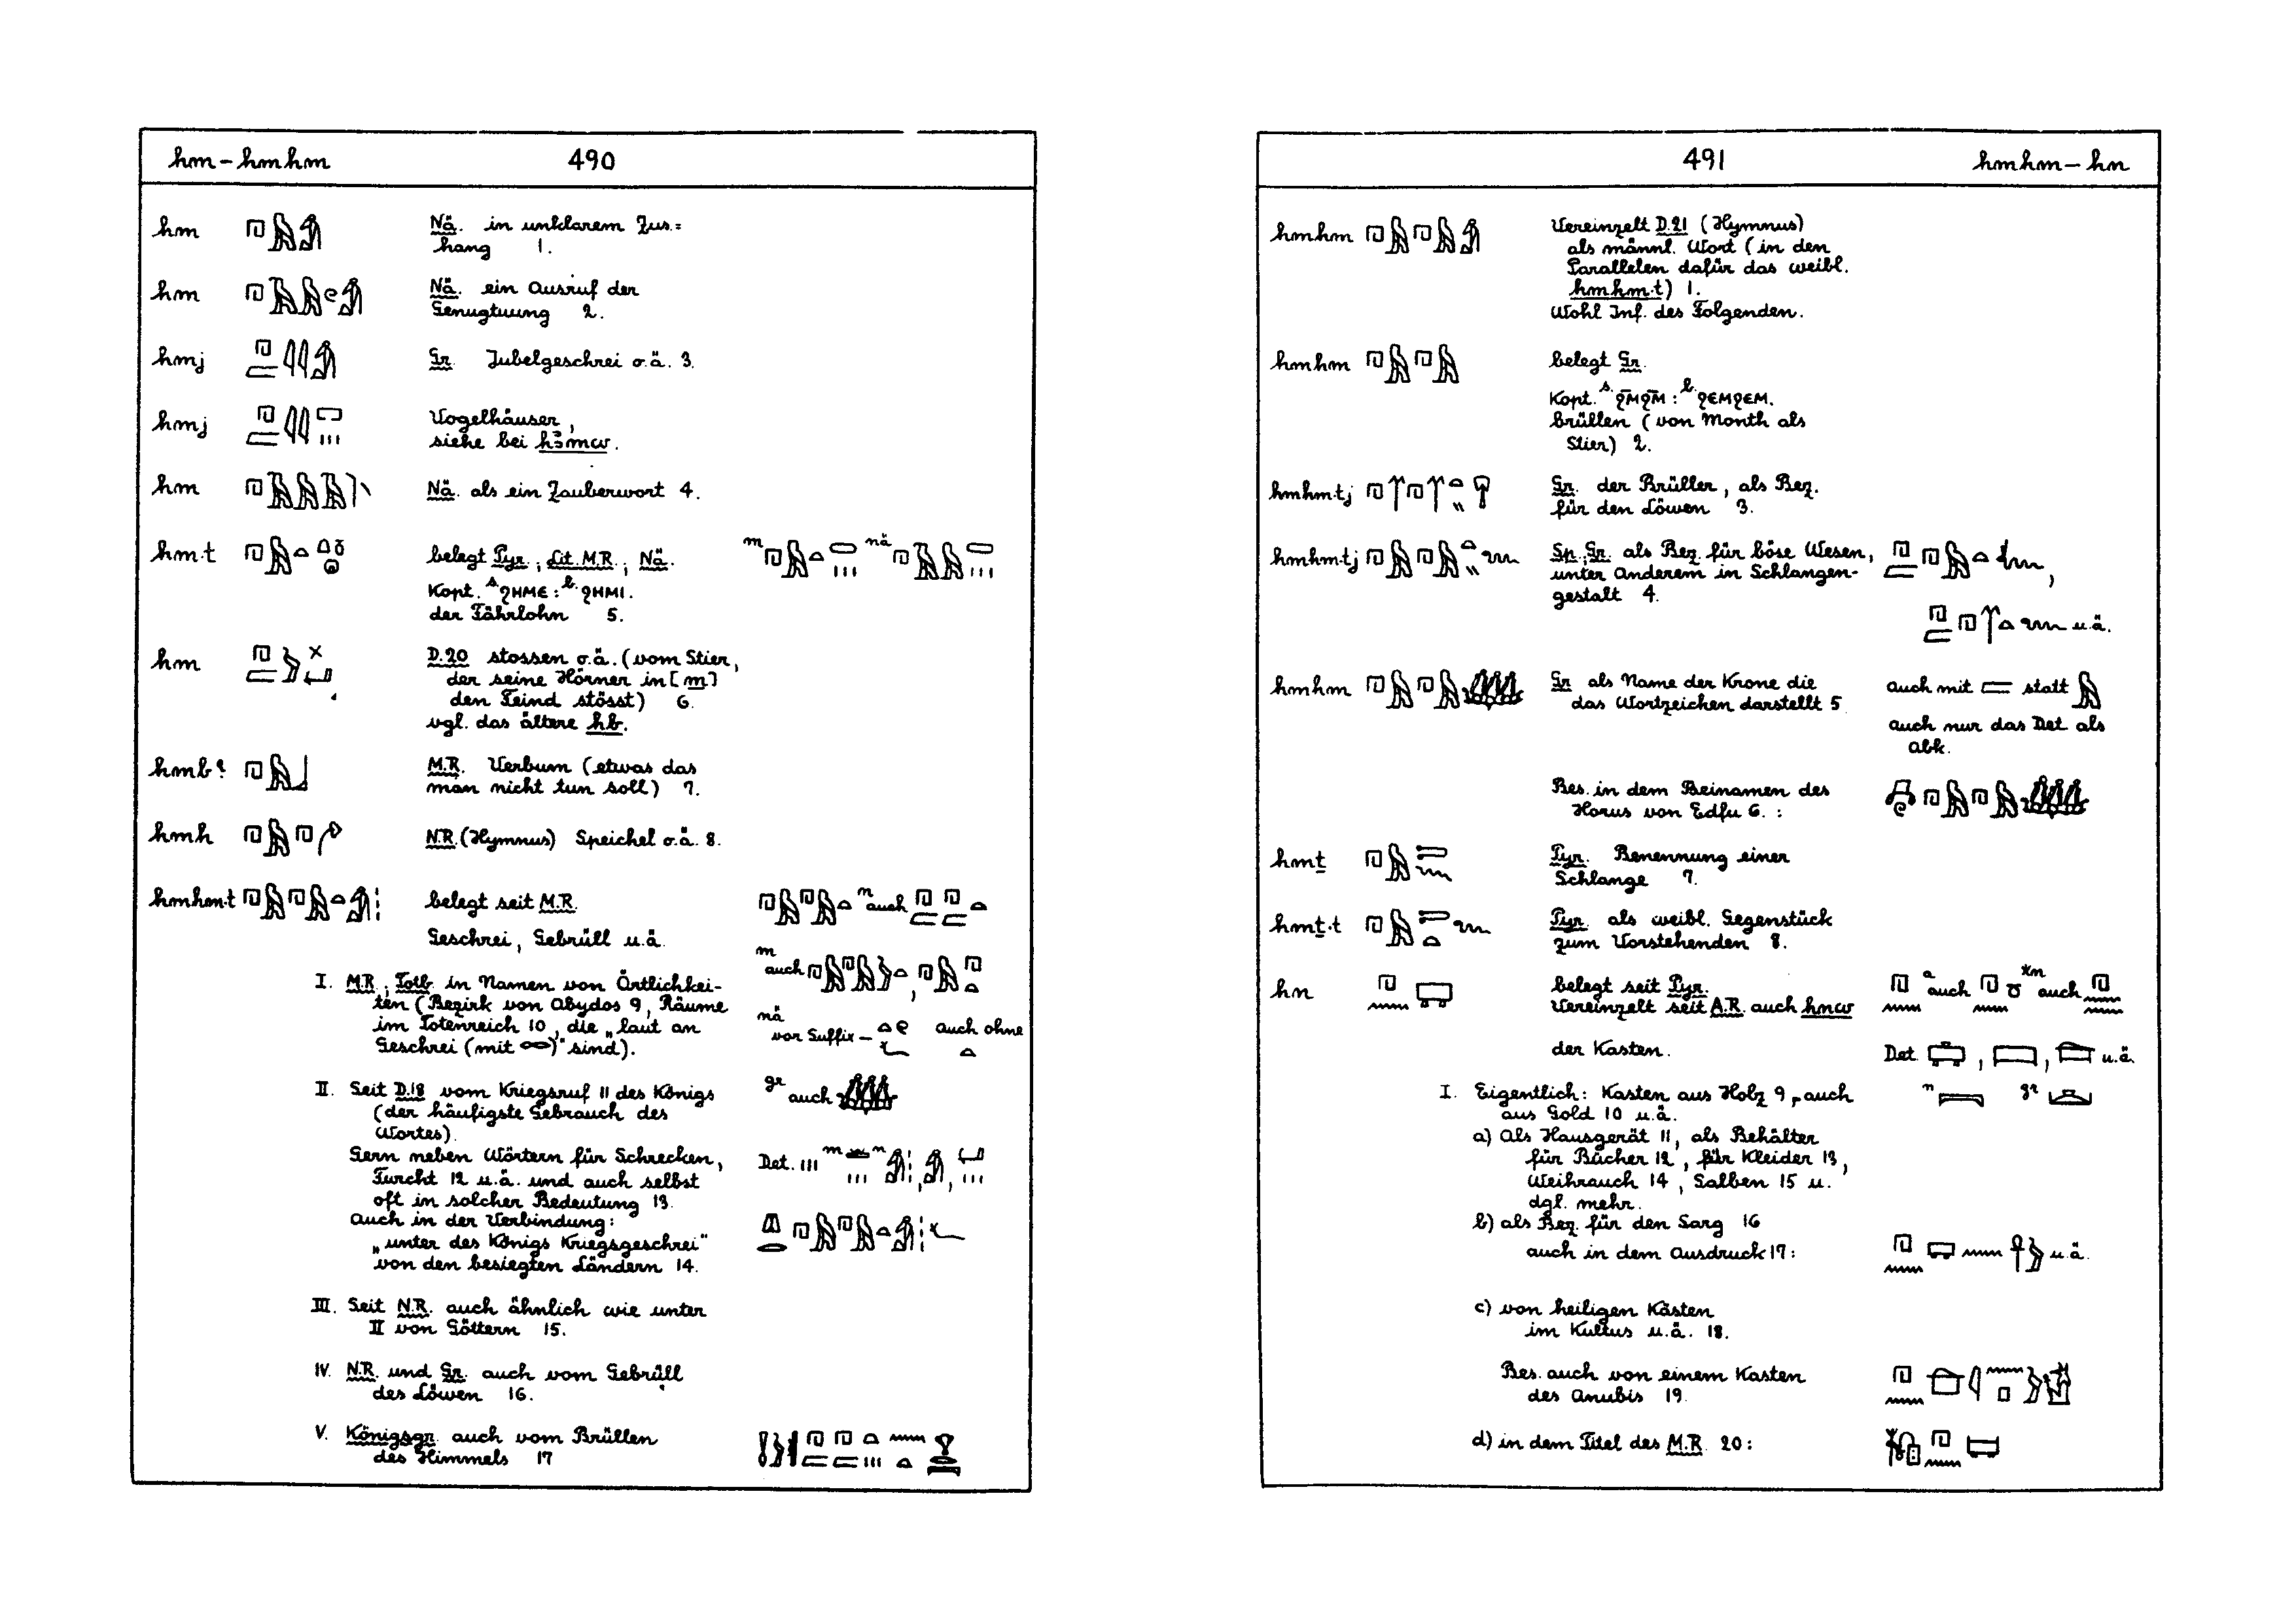 hm – hmhm 490
hm Nä. in unklarem Zus.=
hang 1.
hm Nä. ein Ausruf der
Genugtuung 2.
hmj Gr. Jubelgeschrei o.ä. 3.
hmj Vogelhäuser,
siehe bei hꜣmw.
hm Nä. als ein Zauberwort 4.
hm.t belegt Pyr.; Lit. M.R.; Nä. m nä
Kopt. s. ϩHMЄ : b. ϩHMI.
der Fährlohn 5.
hm D.20 stossen o.ä. (vom Stier,
der seine Hörner in [m]
den Feind stösst) 6.
vgl. das ältere hb.
hmb? M.R. Verbum (etwas das
man nicht tun soll) 7.
hmh N.R. (Hymnus) Speichel o.ä. 8.
hmhm.t belegt seit M.R. n auch
Geschrei, Gebrüll u.ä.
m auch
I. M.R.; Totb. in Namen von Örtlichkei-
ten (Bezirk von Abydos 9, Räume
im Totenreich 10, die „laut an
Geschrei (mit )" sind).
nä vor Suffix – auch ohne
II. Seit D.18 vom Kriegsruf 11 des Königs
(der häufigste Gebrauch des
Wortes).
gr auch
Gern neben Wörtern für Schrecken,
Furcht 12 u.ä. und auch selbst
oft in solcher Bedeutung 13.
Det. m n
Auch in der Verbindung:
„unter des Königs Kriegsgeschrei"
von den besiegten Ländern 14.
III. Seit N.R. auch ähnlich wie unter
II von Göttern 15.
IV. N.R. und Gr. auch vom Gebrüll
des Löwen 16.
V. Königsgr. auch vom Brüllen
des Himmels 17
491 hmhm – hn
hmhm Vereinzelt D.21 (Hymnus)
als männl. Wort (in den
Parallelen dafür das weibl.
hmhm.t) 1.
Wohl Inf. des Folgenden.
hmhm belegt Gr.
Kopt. s. ϩM̄ϩM̄ : b. ϩЄMϩЄM.
brüllen (von Month als
Stier) 2.
hmhm.tj Gr. der Brüller, als Bez.
für den Löwen 3.
hmhm.tj Sp. Gr. als Bez. für böse Wesen,
unter Anderem in Schlangen-
gestalt 4.
u.ä.
hmhm Gr als Name der Krone die
das Wortzeichen darstellt 5
auch mit statt
auch nur das Det als
Abk.
Bes. in dem Beinamen des
Horus von Edfu 6. :
hmṯ Pyr. Benennung einer
Schlange 7.
hmṯ.t Pyr. als weibl. Gegenstück
zum Vorstehenden 8.
hn belegt seit Pyr.
Vereinzelt seit A.R. auch hnw
a auch *n auch
der Kasten. Det. u.ä.
n gr
I. Eigentlich: Kasten aus Holz 9, auch
aus Gold 10 u.ä.
a) Als Hausgerät 11, als Behälter
für Bücher 12, für Kleider 13,
Weihrauch 14, Salben 15 u.
dgl. mehr.
b) als Bez. für den Sarg 16
auch in dem Ausdruck 17: u.ä.
c) von heiligen Kästen
im Kultus u.ä. 18.
Bes. auch von einem Kasten
des Anubis 19.
d) in dem Titel des M.R. 20: